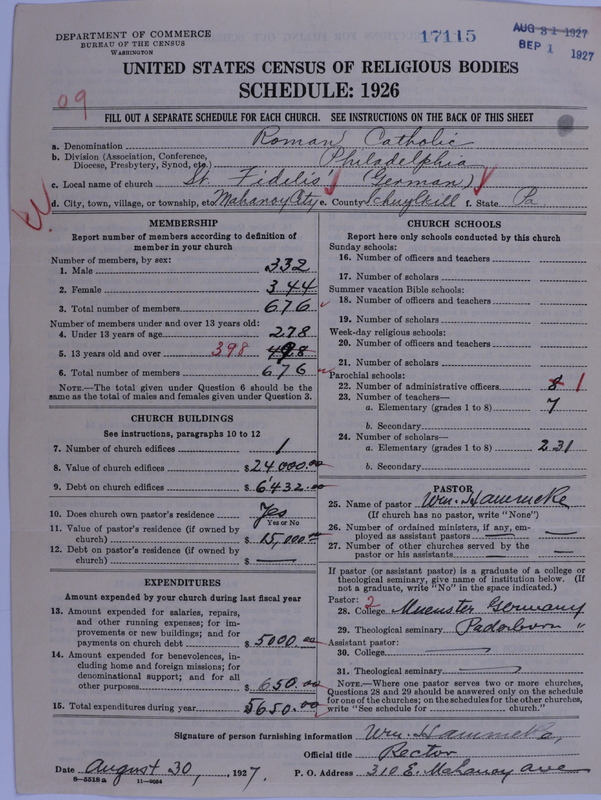 DEPARTMENT OF COMMERCE
BUREAU OF THE CENSUS
WASHINGTON
17115
AUG 31 1927
SEP 1 1927
UNITED STATES CENSUS OF RELIGIOUS BODIES
SCHEDULE: 1926
09
FILL OUT A SEPARATE SCHEDULE FOR EACH CHURCH. SEE INSTRUCTIONS ON THE BACK OF THIS SHEET
a. Denomination Roman Catholic
b. Division (Association, Conference, Diocese, Presbytery, Synod, etc.) Philadelphia
c. Local name of church St Fidelis' (German)
d. City, town, village, or township, etc Mahanoy City e. County Schuylkill f. State Pa
MEMBERSHIP
Report number of members according to definition of
member in your church
Number of members, by sex:
1. Male 332
2. Female 344
3. Total number of members 676
Number of members under and over 13 years old:
4. Under 13 years of age 278
5. 13 years old and over 398 498
6. Total number of members 676
NOTE.—The total given under Question 6 should be
same as the total of males and females given under Question 3.
CHURCH BUILDINGS
See instructions, paragraphs 10 to 12
7. Number of church edifices 1
8. Value of church edifices $ 24000.00
9. Debt on church edifices $ 6432.00
10. Does church own pastor's residence Yes
Yes or No
11. Value of pastor's residence (if owned by
church) $ 15,000.00
12. Debt on pastor's residence (if owned by
church) $ —
EXPENDITURES
Amount expended by your church during last fiscal year
13. Amount expended for salaries, repairs,
and other running expenses; for im-
provements or new buildings; and for
payments on church debt $ 5000.00
14. Amount expended for benevolences, in-
cluding home and foreign missions; for
denominational support; and for all
other purposes $ 650.00
15. Total expenditures during year $ 5650.00
CHURCH SCHOOLS
Report here only schools conducted by this church
Sunday schools:
16. Number of officers and teachers
17. Number of scholars
Summer vacation Bible schools:
18. Number of officers and teachers
19. Number of scholars
Week-day religious schools:
20. Number of officers and teachers
21. Number of scholars
Parochial schools:
22. Number of administrative officers 8 1
23. Number of teachers—
a. Elementary (grades 1 to 8) 7
b. Secondary
24. Number of scholars—
a. Elementary (grades 1 to 8) 231
b. Secondary
PASTOR
25. Name of pastor Wm. Hammeke
(If church has no pastor, write "None")
26. Number of ordained ministers, if any, em-
ployed as assistant pastors —
27. Number of other churches served by the
pastor or his assistants —
If pastor (or assistant pastor) is a graduate of a college or
theological seminary, give name of institution below. (If
not a graduate, write "No" in the space indicated.)
Pastor: 2
28. College Muenster Germany
29. Theological seminary Paderborn "
Assistant pastor:
30. College —
31. Theological seminary —
NOTE.—Where one pastor serves two or more churches,
Questions 28 and 29 should be answered only on the schedule
for one of the churches; on the schedules for the other churches,
write "See schedule for church."
Signature of person furnishing information Wm. Hammeke,
Official title Rector
Date August 30, 1927. P. O. Address 310 E. Mahanoy Ave
8-5518a 11-9084